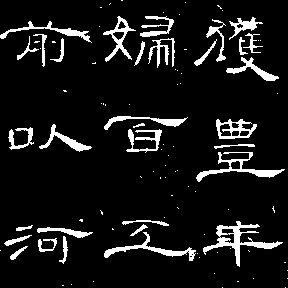 獲豐年
婦百工
前以河